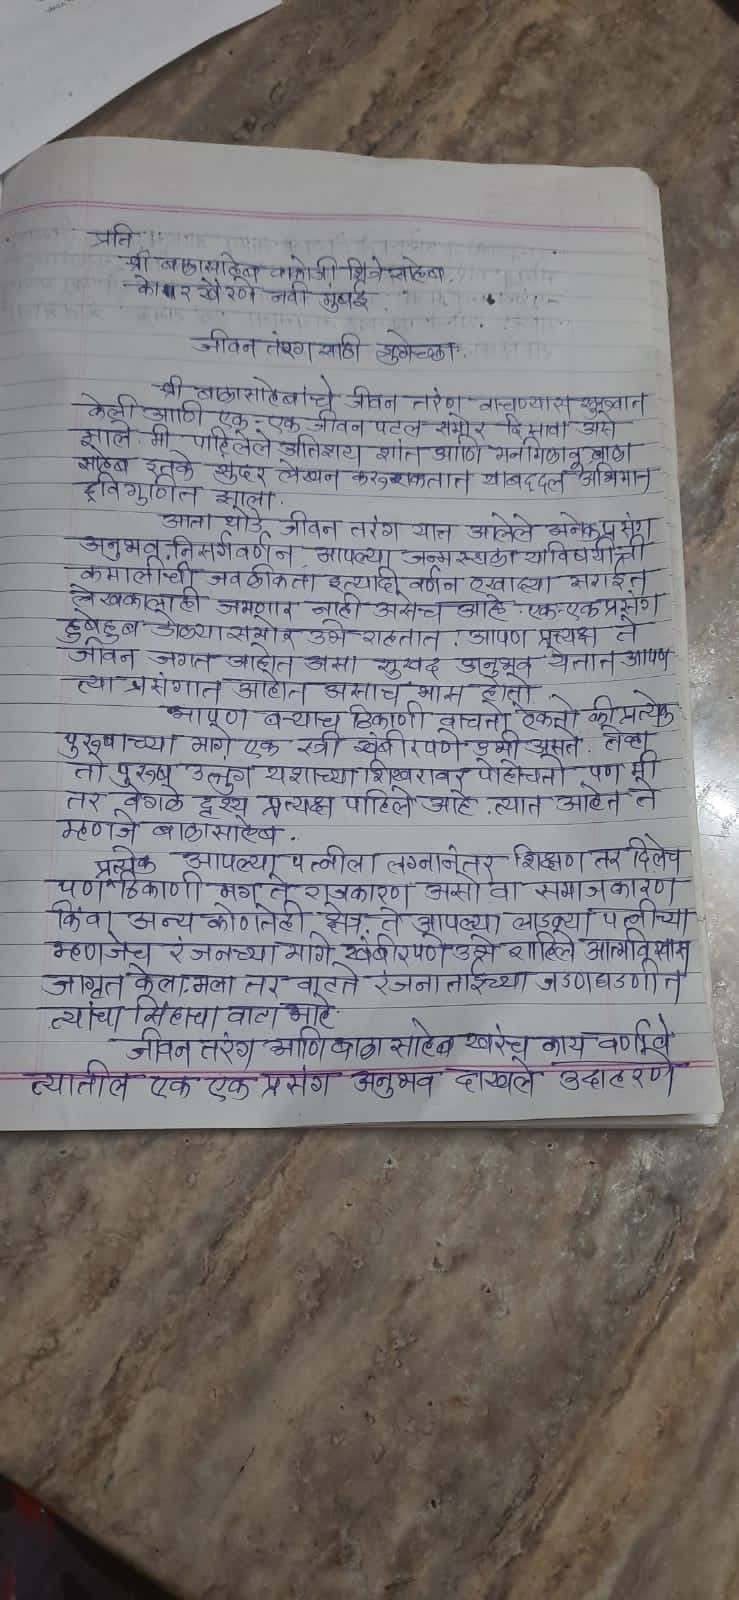 प्रति
श्री बाळासाहेब शिर्वेसाहेब.
कोपर खैरणे नवी मुंबई.
जीवन तरंगसाठी शुभेच्छा.
श्री बाळासाहेबांचे जीवन तरंग वाचण्यास सुरूवात
केली आणि एक-एक जीवन पटल समोर दिसावा असे
झाले. मी पाहिलेले अतिशय शांत आणि मनमिळावू बाळा
साहेब इतके सुंदर लेखन करू शकतात याबद्दल अभिमान
द्विगुणित झाला.
आता थोडे जीवन तरंग यात आलेले अनेक प्रसंग
अनुभव, निसर्गवर्णन, आपल्या जन्मस्थळा याविषयीची
कमालीची जवळीकता इत्यादी वर्णन एखाद्या सराईत
लेखकालाही जमणार नाही असेच आहे. एक-एक प्रसंग
हुबेहुब डोळ्यासमोर उभे राहतात. आपण प्रत्यक्ष ते
जीवन जगत आहोत असा सुखद अनुभव येतान आपण
त्या प्रसंगात आहोत असाच भास होतो.
आपण बऱ्याच ठिकाणी वाचतो ऐकतो की प्रत्येक
पुरूषाच्या मागे एक स्त्री खंबीरपणे उभी असते. तेव्हा
तो पुरूष उत्तुंग यशाच्या शिखरावर पोहोचतो पण मी
तर वेगळे दृश्य प्रत्यक्ष पाहिले आहे. त्यात आहेत ते
म्हणजे बाळासाहेब.
प्रत्येक आपल्या पत्नीला लग्नानंतर शिक्षण तर दिलेच
पण ठिकाणी मग ते राजकारण असो वा समाजकारण
किंवा अन्य कोणतेही क्षेत्र. ते आपल्या लाडक्या पत्नीच्या
म्हणजेच रंजनच्या मागे खंबीरपणे उभे राहिले आत्मविश्वास
जागृत केला. मला तर वाटते रंजनाताईंच्या जडणघडणीत
त्यांचा सिंहाचा वाटा आहे.
जीवन तरंग आणि बाळासाहेब खरंच काय वर्णावे
त्यातील एक एक प्रसंग अनुभव दाखले उदाहरणे